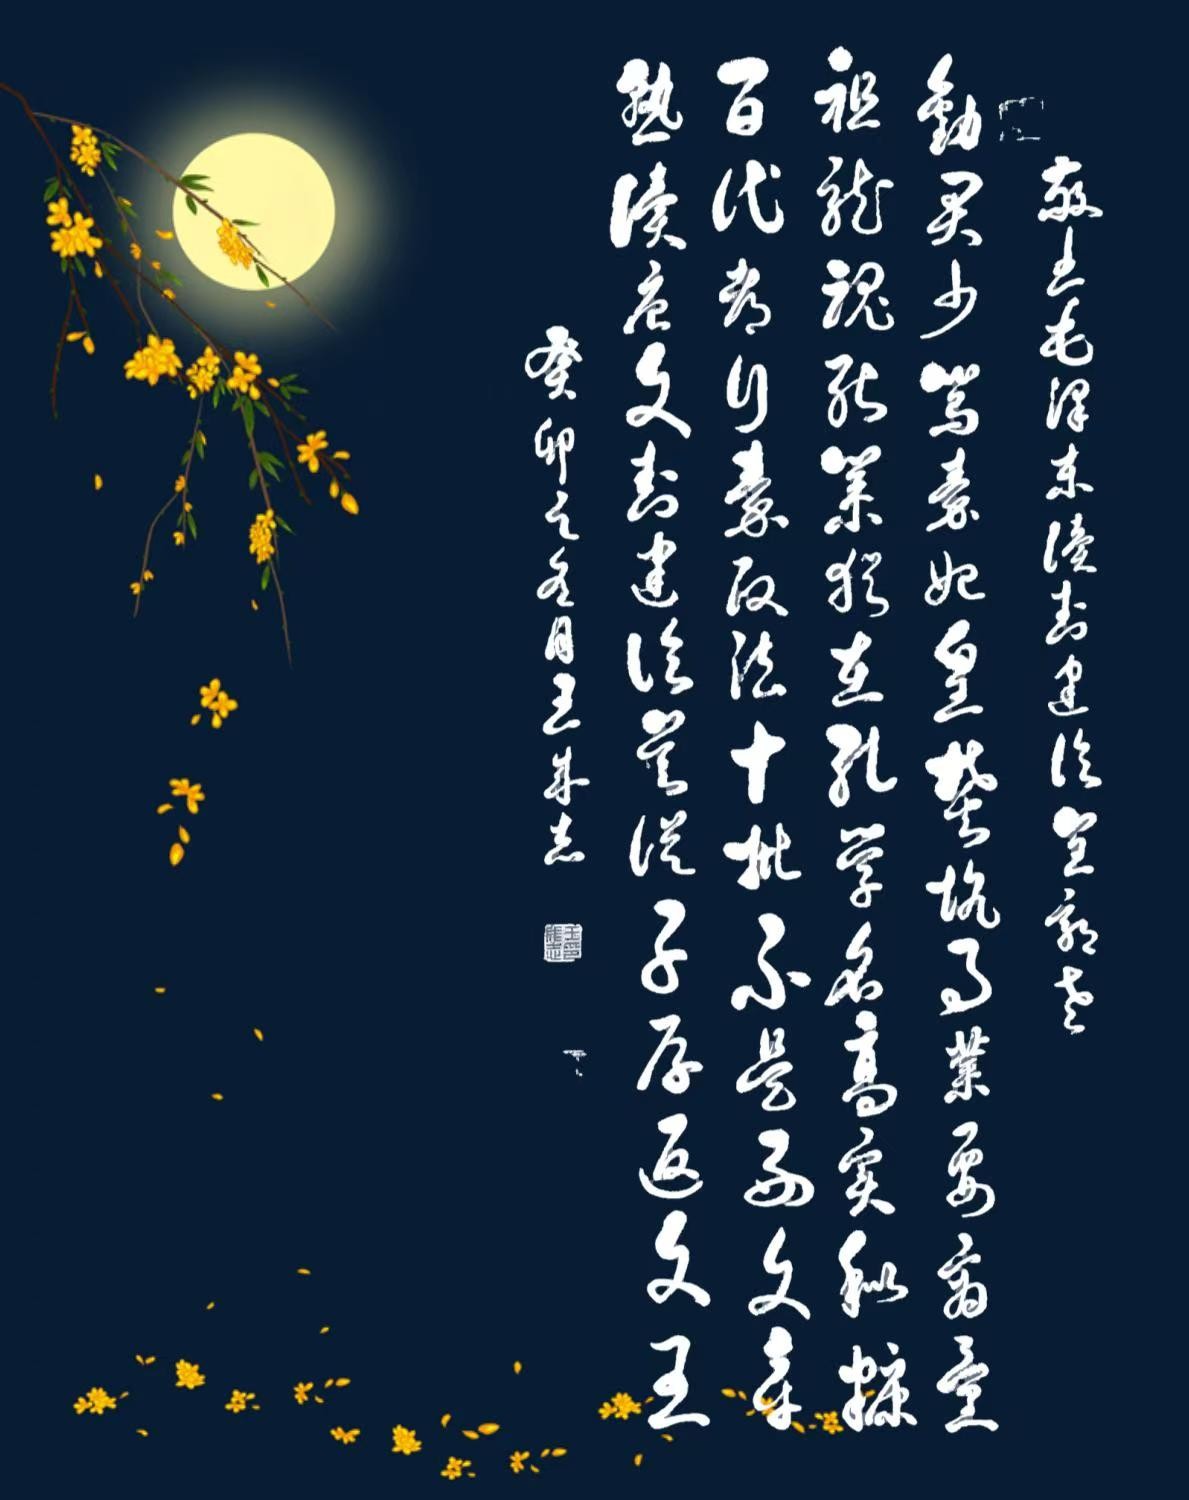 敬书毛泽东读封建论呈郭老
勸君少罵秦始皇焚坑事業要商量
祖龍魂死秦猶在孔学名高实秕糠
百代都行秦政法十批不是好文章
熟读唐文封建论莫從子厚返文王
癸卯之冬月王成志